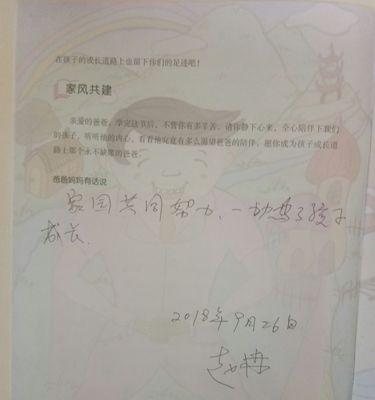 在孩子的成长道路上也留下你们的足迹吧！
家风共建
亲爱的爸爸，学完这节后，不管你有多辛苦，请你静下心来，全心陪伴下我们
的孩子，听听他的内心，看看他究竟有多么渴望爸爸的陪伴，愿你成为孩子成长道
路上那个永不缺席的爸爸。
爸爸妈妈有话说
家国共同努力，一切为了孩子
成长.
2018年9月26日